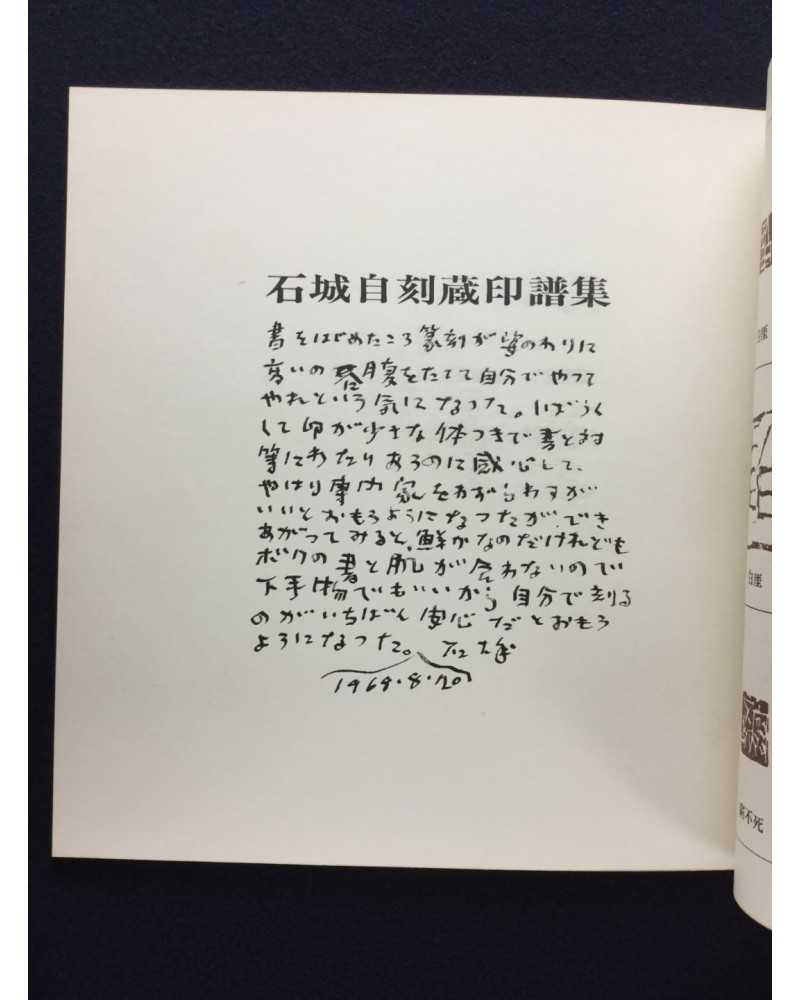 石城自刻蔵印譜集
書をはじめたころ篆刻が姿のわりに
高いの 腹をたてて自分でやって
やれという気になった。いぼうく
して印が小さな体つきで書と対
等にわたりあうのに感心して、
やはり専門家をわずらわすが
いいとおもうようになったが、でき
あがってみると、鮮かなのだけれども
ボクの書と肌が合わないので
下手物でもいいから自分で刻る
のがいちばん安心だとおもう
ようになった。 石
1969.8.20
白厓
窮不死